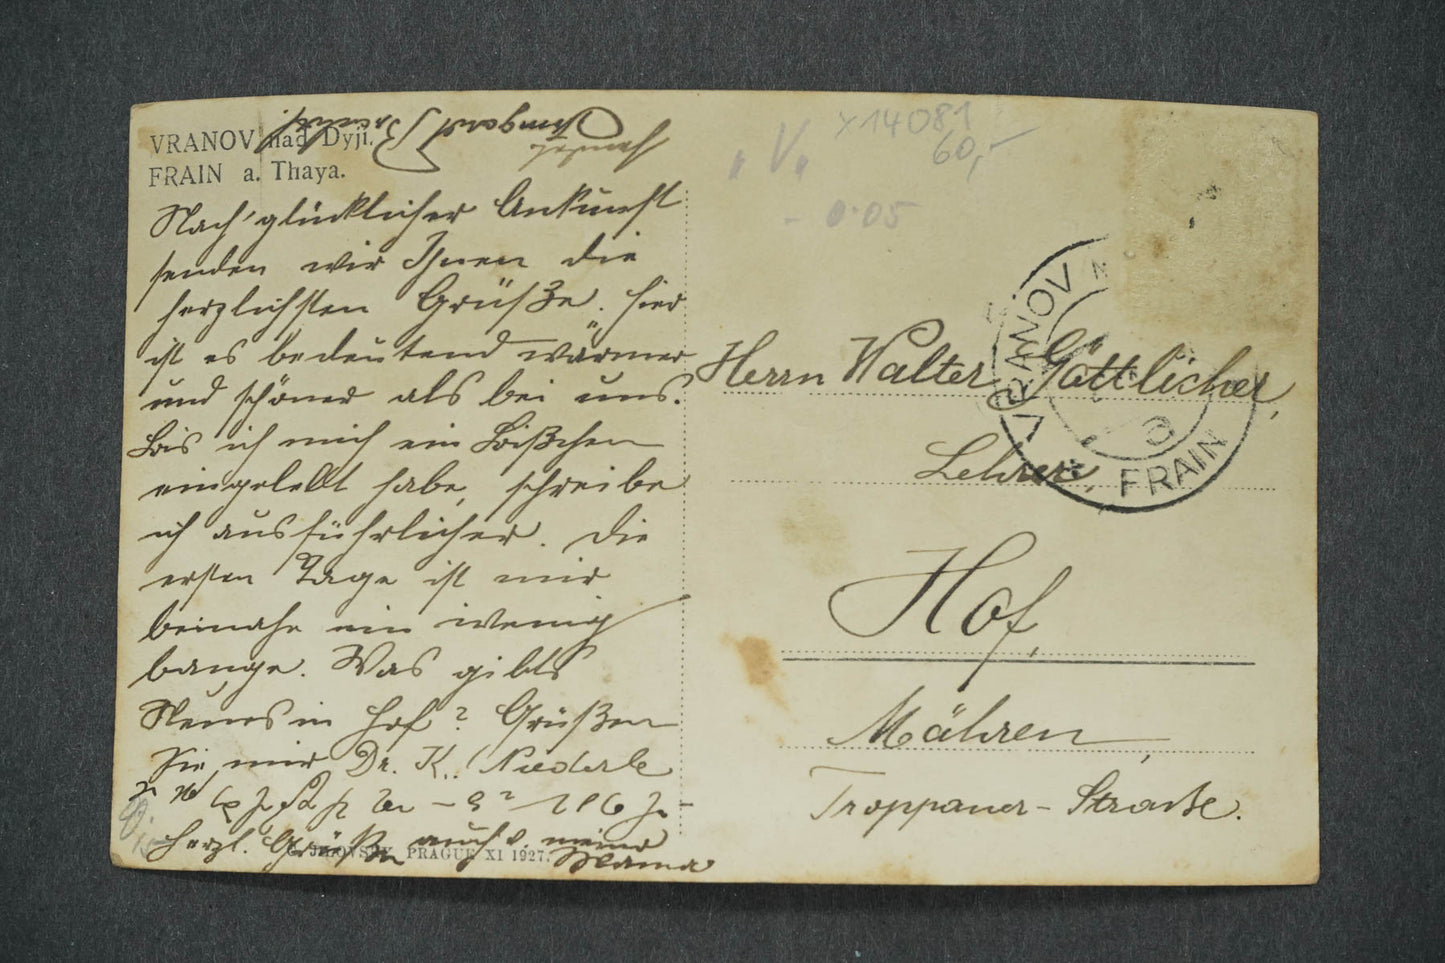 VRANOV nad Dyjí.
FRAIN a. Thaya.
Nach glücklicher Ankunft
senden wir Ihnen die
herzlichsten Grüße. Hier
ist es bedeutend wärmer
und schöner als bei uns.
Bis ich mich ein bißchen
eingelebt habe, schreibe
ich ausführlicher. Die
ersten Tage ist mir
beinahe ein wenig
bange. Was gibts
Neues in Hof? Grüßen
Sie mir Dr. K.
Herzl. Grüße auch v. meiner
Mama
Irmgard
PRAGUE XI 1927.
"V"
Y14081
60,-
- 0.05
VRANOV
FRAIN
Herrn Walter Göttlicher,
Lehrer,
Hof,
Mähren,
Troppauer-Straße.